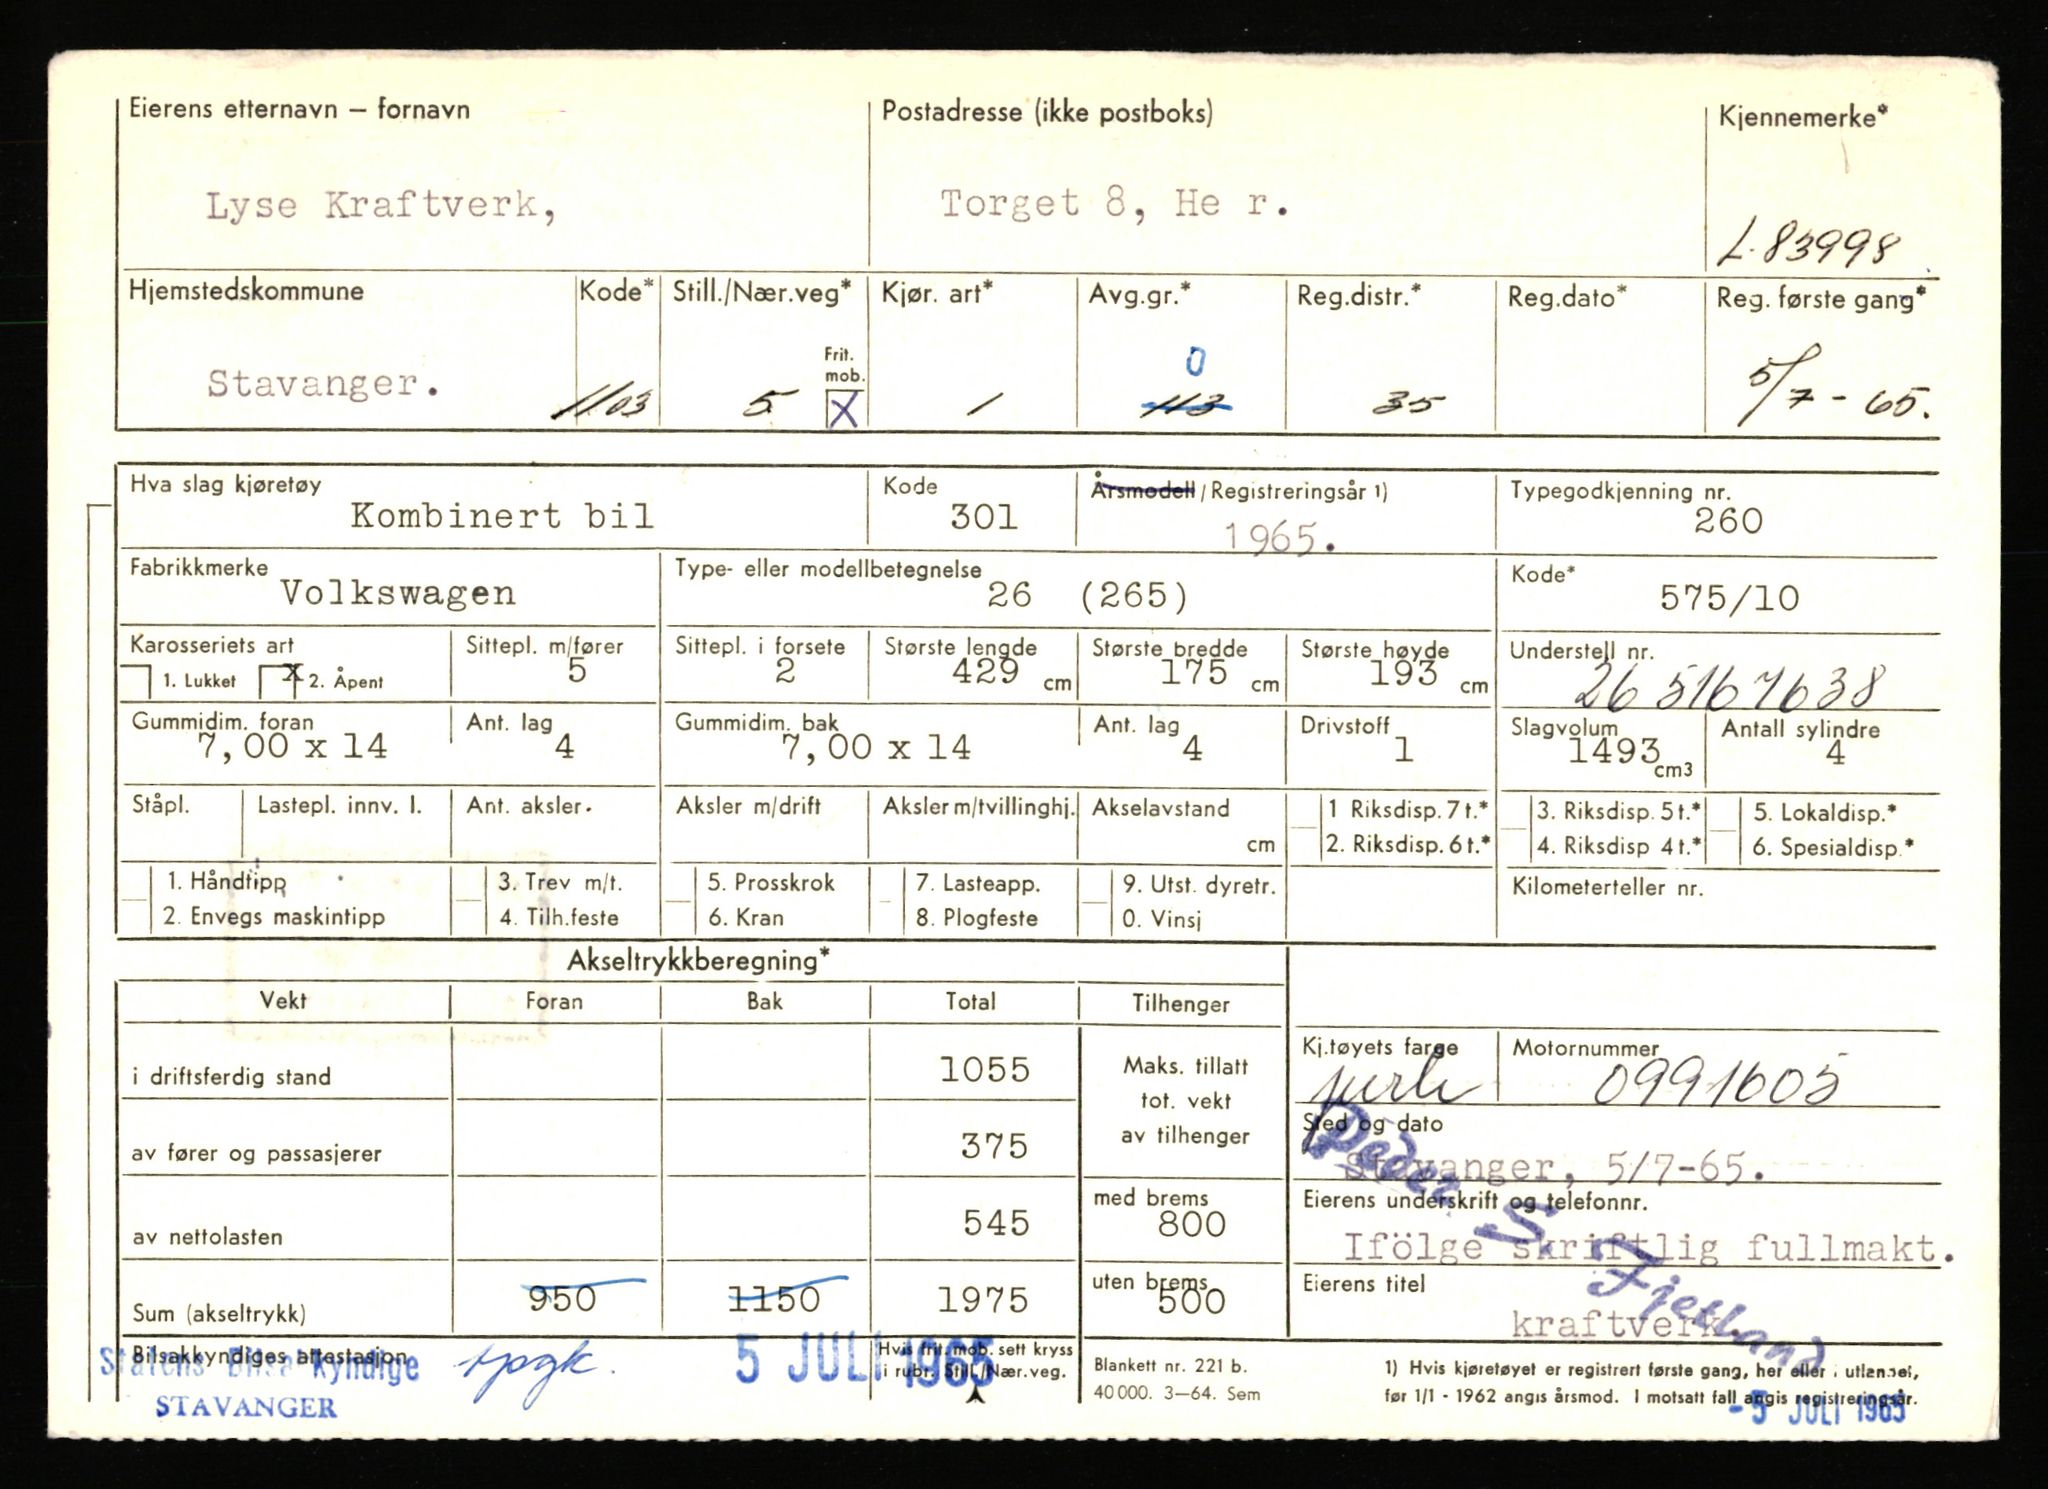 Eierens etternavn — fornavn Postadresse (ikke postboks) Kjennemerke*
Lyse Kraftverk, Torget 8, He r. L-83998
Hjemstedskommune Kode* Still./Nær.veg* Kjør. art* Avg.gr.* Reg.distr.* Reg.dato* Reg. første gang*
Frit. mob. 0
Stavanger. 1103 5 X 1 113 35 5/7-65.
Hva slag kjøretøy Kode Årsmodell/Registreringsår 1) Typegodkjenning nr.
Kombinert bil 301 1965. 260
Fabrikkmerke Type- eller modellbetegnelse Kode*
Volkswagen 26 (265) 575/10
Karosseriets art Sittepl. m/fører Sittepl. i forsete Største lengde Største bredde Største høyde Understell nr.
1. Lukket x 2. Åpent 5 2 429 cm 175 cm 193 cm 265167638
Gummidim. foran Ant. lag Gummidim. bak Ant. lag Drivstoff Slagvolum Antall sylindre
7,00 x 14 4 7,00 x 14 4 1 1493 cm3 4
Ståpl. Lastepl. innv. l. Ant. aksler. Aksler m/drift Aksler m/tvillinghj. Akselavstand 1 Riksdisp. 7 t.* 3. Riksdisp. 5 t.* 5. Lokaldisp.*
cm 2. Riksdisp. 6 t.* 4. Riksdisp 4 t.* 6. Spesialdisp.*
1. Håndtipp 3. Trev m/t. 5. Prosskrok 7. Lasteapp. 9. Utst. dyretr. Kilometerteller nr.
2. Envegs maskintipp 4. Tilh.feste 6. Kran 8. Plogfeste 0. Vinsj
Akseltrykkberegning*
Vekt Foran Bak Total Tilhenger
i driftsferdig stand 1055 Maks. tillatt tot. vekt av tilhenger
Kj.tøyets farge Motornummer
perle 0991605
av fører og passasjerer 375
Sted og dato
Stavanger, 5/7-65.
av nettolasten 545 med brems 800
Eierens underskrift og telefonnr.
Ifölge skriftlig fullmakt.
Peder S. Fjelland
Sum (akseltrykk) 950 1150 1975 uten brems 500
Eierens titel
kraftverk.
Bilsakkyndiges attestasjon
Statens Bilsakkyndige
STAVANGER
5 JULI 1965
Hvis frit. mob. sett kryss
i rubr. Still./Nær.veg.
Blankett nr. 221 b.
40 000. 3—64. Sem
1) Hvis kjøretøyet er registrert første gang, her eller i utlandet,
før 1/1 - 1962 angis årsmod. I motsatt fall angis registreringsår.
- 5 JULI 1965